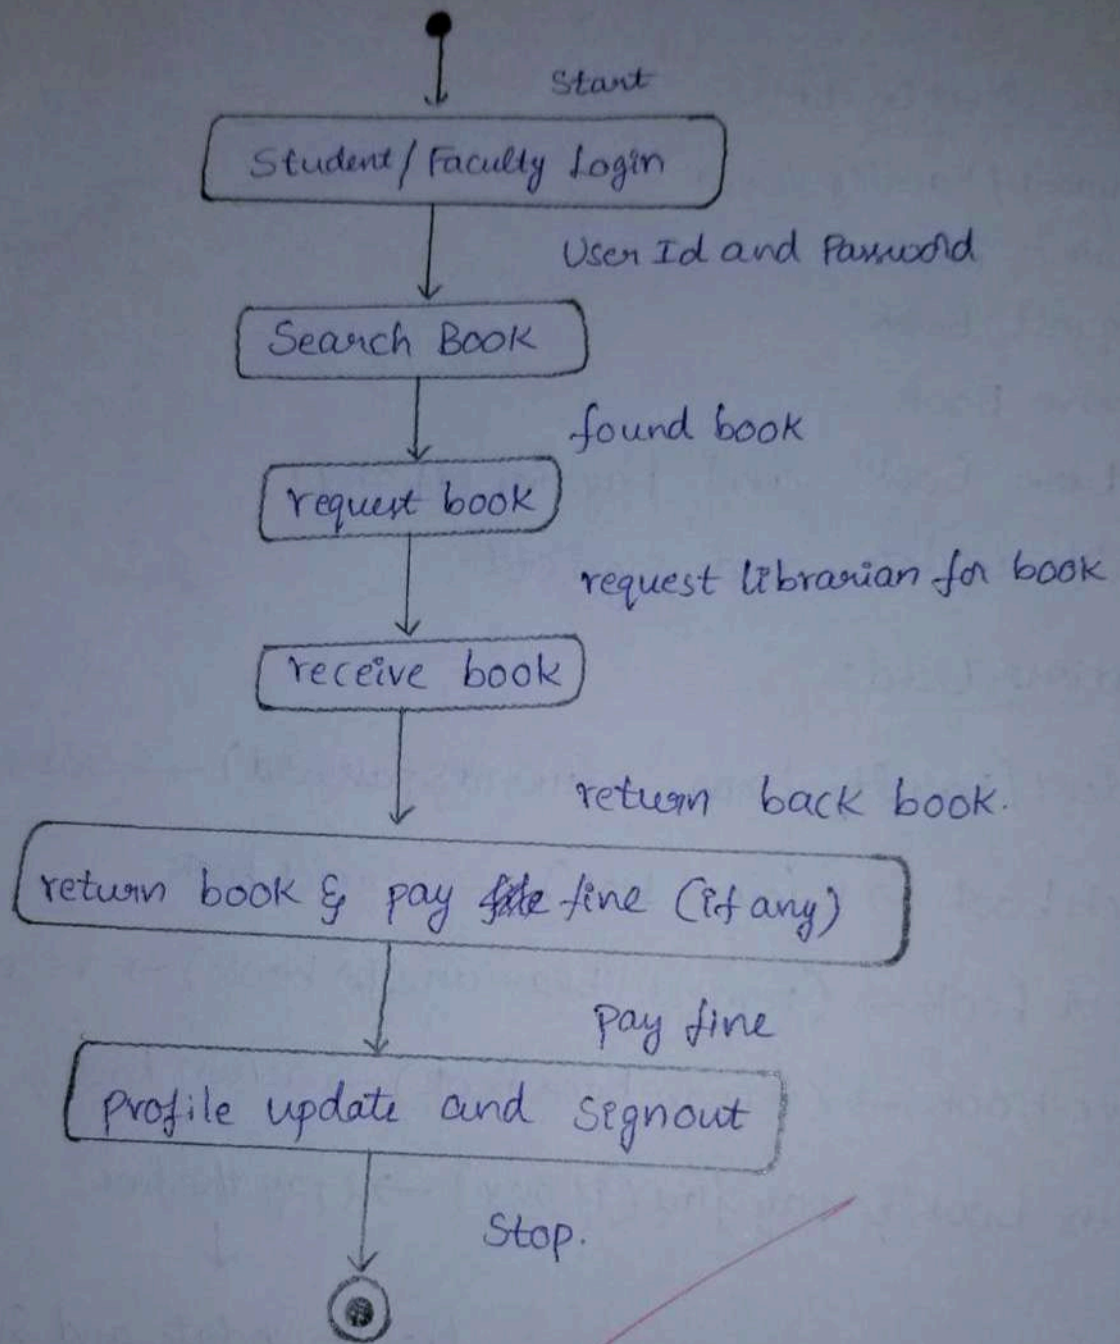 Start
Student/Faculty Login
User Id and Password
Search Book
found book
request book
request librarian for book
receive book
return back book.
return book & pay fine (if any)
pay fine
profile update and signout
Stop.